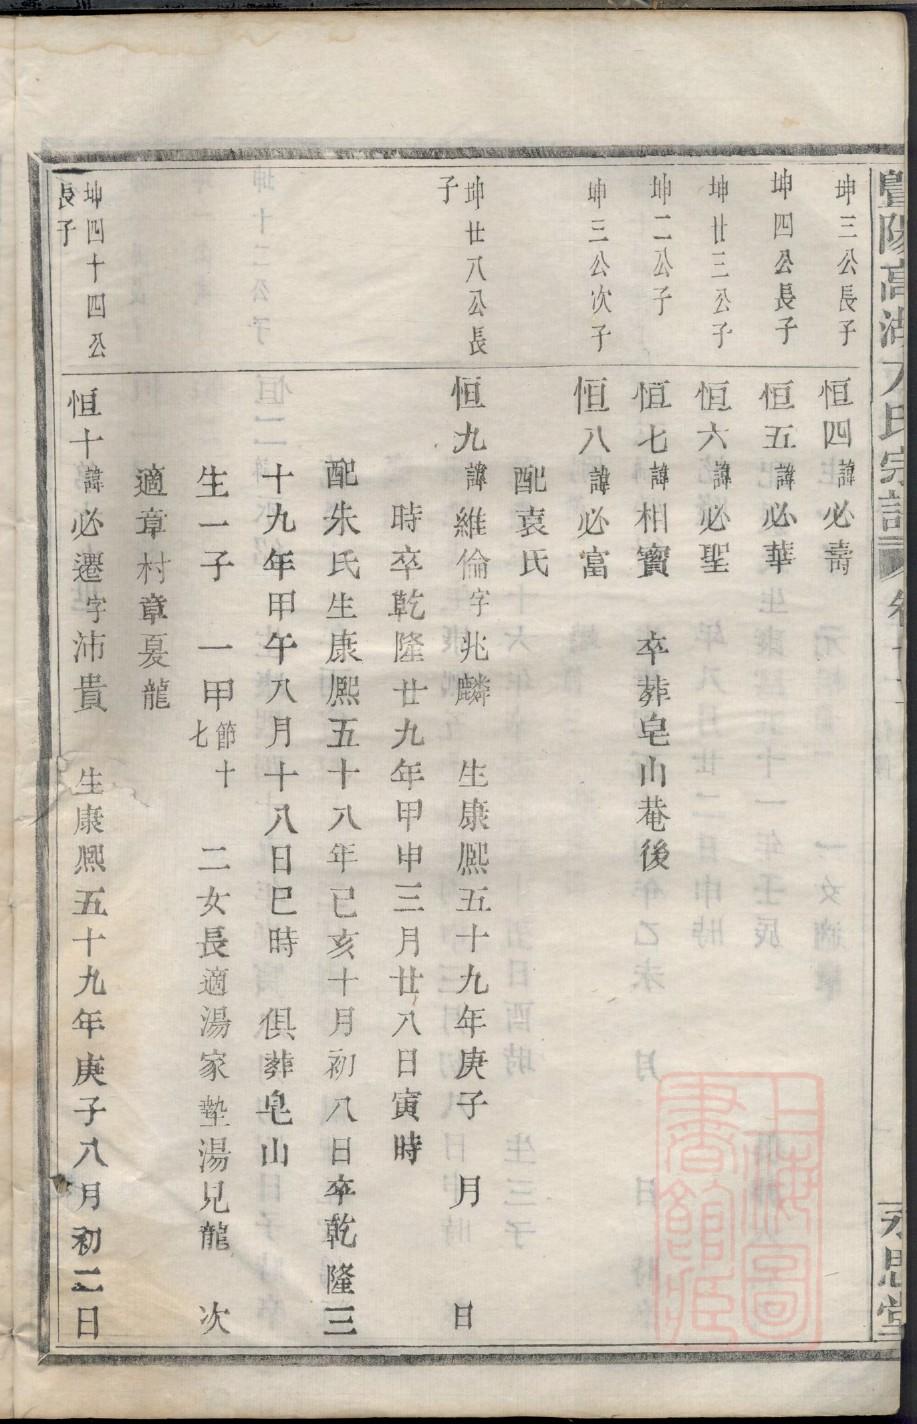 暨陽高湖方氏宗譜
永思堂
坤三公長子
恒四諱必壽
坤四公長子
恒五諱必華
坤廿三公子
恒六諱必聖
坤二公子
恒七諱相寶 卒葬皂山菴後
坤三公次子
恒八諱必富
配袁氏
坤廿八公長
子
恒九諱維倫字兆麟 生康熙五十九年庚子 月 日
時卒乾隆廿九年甲申三月廿八日寅時
配朱氏生康熙五十八年已亥十月初八日卒乾隆三
十九年甲午八月十八日巳時 俱葬皂山
生一子 一甲節十七 二女長適湯家墊湯見龍 次
適章村章夏龍
坤四十四公
長子
恒十諱必遷字沛貴 生康熙五十九年庚子八月初二日
上海圖
書館藏